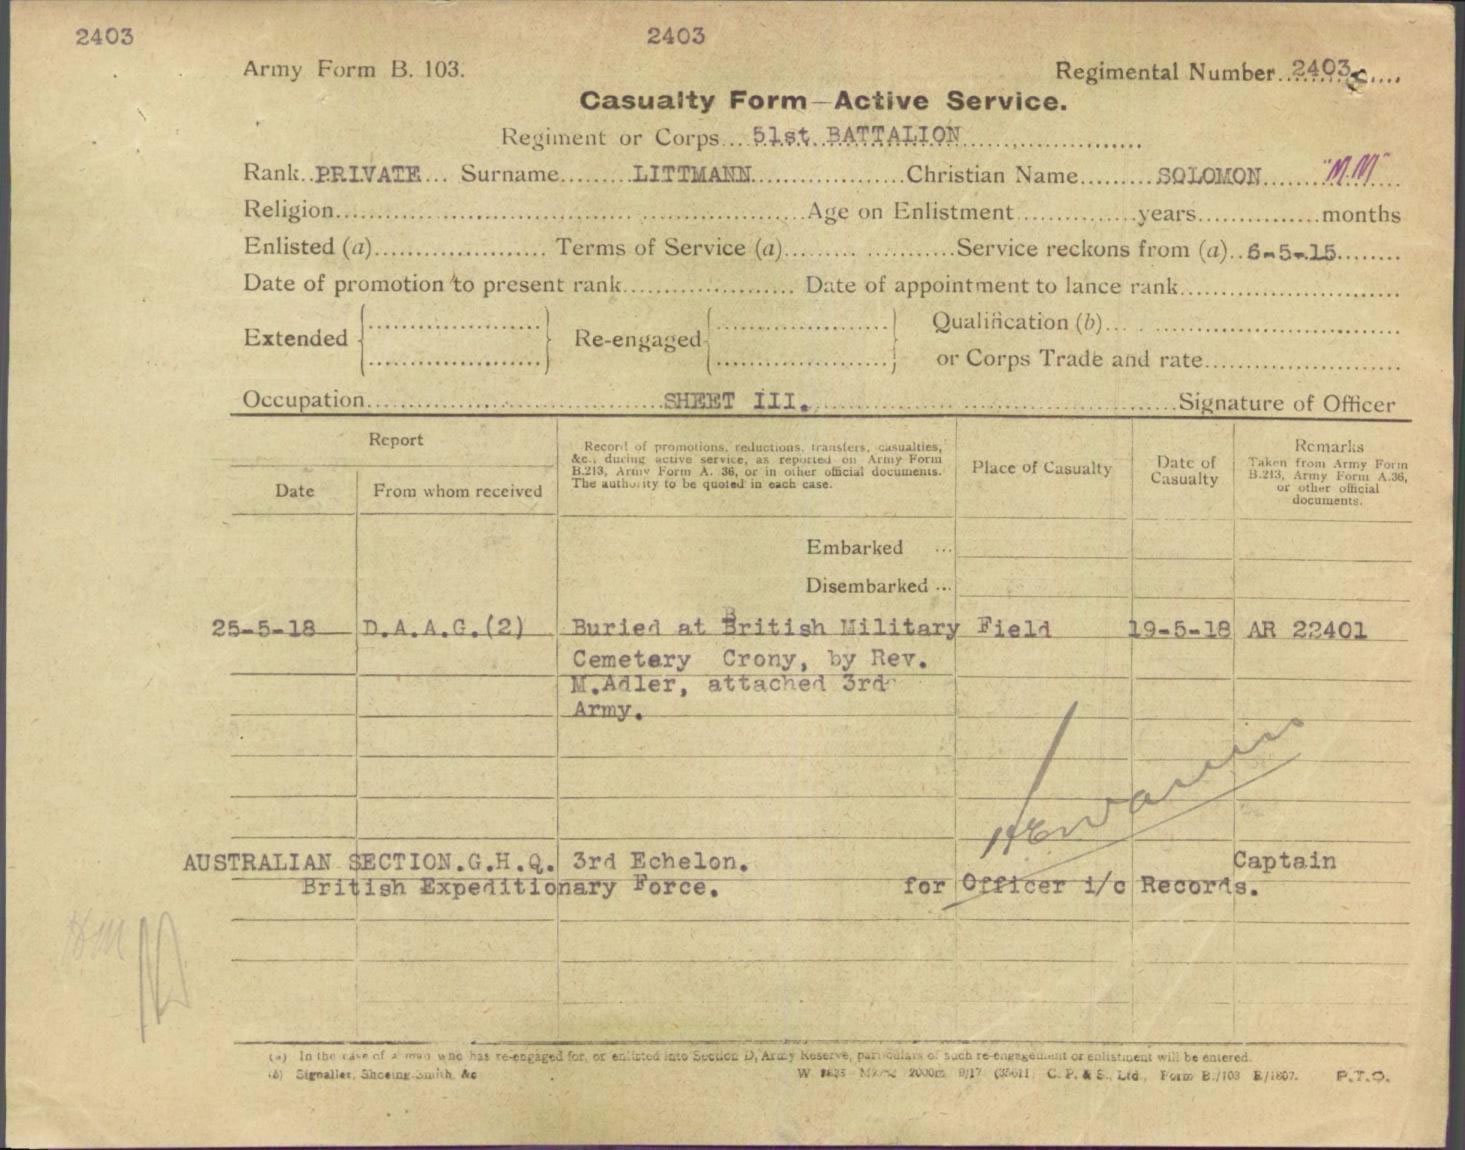 2403 2403
Army Form B. 103. Regimental Number 2403
Casualty Form—Active Service.
Regiment or Corps 51st BATTALION
Rank PRIVATE Surname LITTMANN Christian Name SOLOMON "M.M"
Religion Age on Enlistment years months
Enlisted (a) Terms of Service (a) Service reckons from (a) 6-5-15
Date of promotion to present rank Date of appointment to lance rank
Extended Re-engaged Qualification (b)
or Corps Trade and rate
Occupation SHEET III. Signature of Officer
Report
Date
From whom received
Record of promotions, reductions, transfers, casualties,
&c., during active service, as reported on Army Form
B.213, Army Form A. 36, or in other official documents.
The authority to be quoted in each case.
Place of Casualty
Date of
Casualty
Remarks
Taken from Army Form
B.213, Army Form A.36,
or other official
documents.
Embarked ...
Disembarked ...
25-5-18 D.A.A.G.(2) Buried at British Military Field 19-5-18 AR 22401
Cemetery Crony, by Rev.
M.Adler, attached 3rd
Army.
AUSTRALIAN SECTION.G.H.Q. 3rd Echelon. Captain
British Expeditionary Force. for Officer i/c Records.
(a) In the case of a man who has re-engaged for, or enlisted into Section D, Army Reserve, particulars of such re-engagement or enlistment will be entered.
(b) Signaller, Shoeing-Smith, &c
2000m 9/17 C. P. & S., Ltd., Form B./103 E/1807. P.T.O.